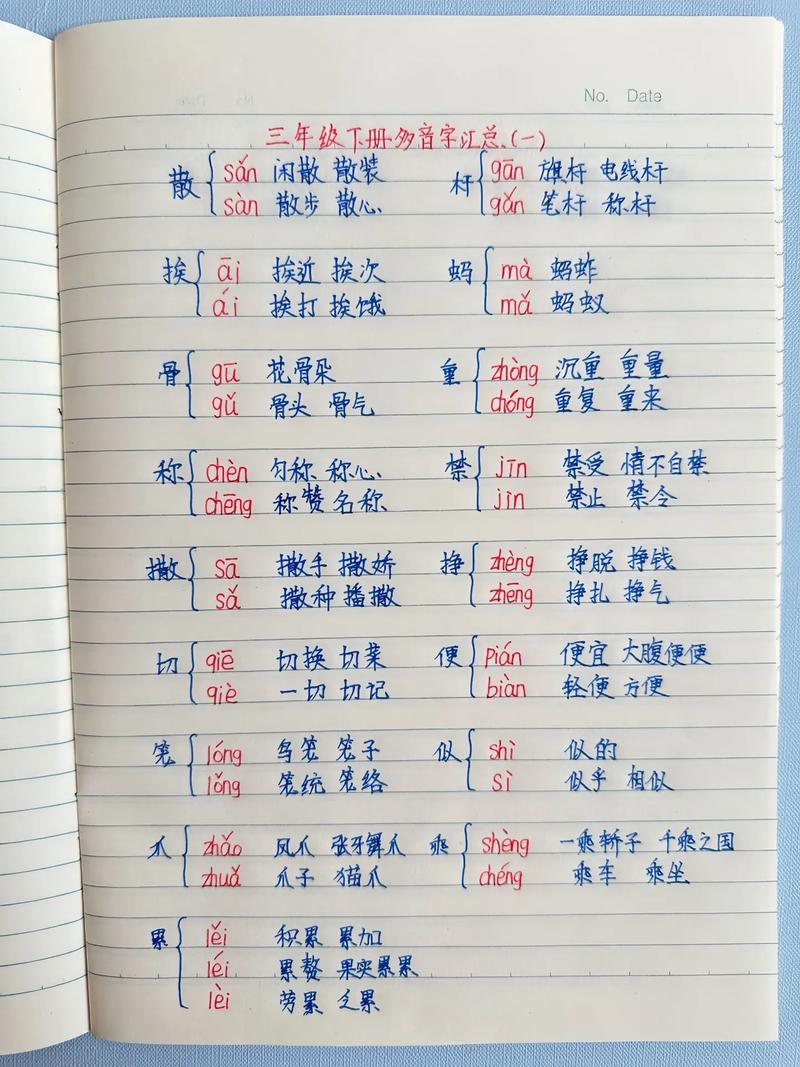 No. Date
三年级下册多音字汇总(一)
散 sǎn 闲散 散装
sàn 散步 散心
杆 gān 旗杆 电线杆
gǎn 笔杆 称杆
挨 āi 挨近 挨次
ái 挨打 挨饿
蚂 mà 蚂蚱
mǎ 蚂蚁
骨 gū 花骨朵
gǔ 骨头 骨气
重 zhòng 沉重 重量
chóng 重复 重来
称 chèn 匀称 称心
chēng 称赞 名称
禁 jīn 禁受 情不自禁
jìn 禁止 禁令
撒 sā 撒手 撒娇
sǎ 撒种 播撒
挣 zhèng 挣脱 挣钱
zhēng 挣扎 挣气
切 qiē 切换 切菜
qiè 一切 切记
便 pián 便宜 大腹便便
biàn 轻便 方便
笼 lóng 鸟笼 笼子
lǒng 笼统 笼络
似 shì 似的
sì 似乎 相似
爪 zhǎo 凤爪 张牙舞爪
zhuǎ 爪子 猫爪
乘 shèng 一乘轿子 千乘之国
chéng 乘车 乘坐
累 lěi 积累 累加
léi 累赘 果实累累
lèi 劳累 乏累